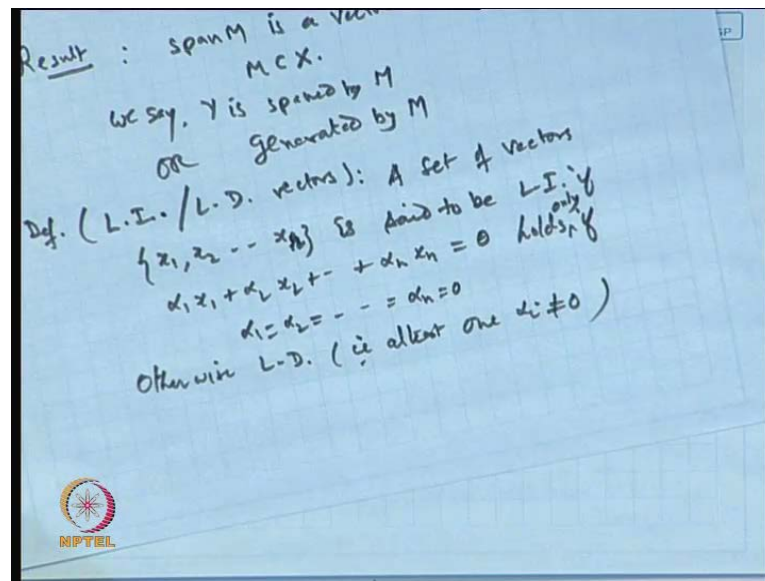 Result : span M is a
M ⊂ X.
we say, Y is spaned by M
OR generated by M
Def. (L.I. / L.D. vectors): A set of vectors
{x₁, x₂ -- xₙ} is said to be L.I. if
α₁x₁ + α₂x₂ + - + αₙxₙ = 0 holds only if
α₁ = α₂ = - - = αₙ = 0
Otherwise L.D. (ie atleast one αᵢ ≠ 0)
NPTEL